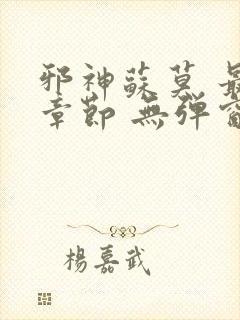 邪神蘇莫 最
章節 無彈窗
楊嘉武